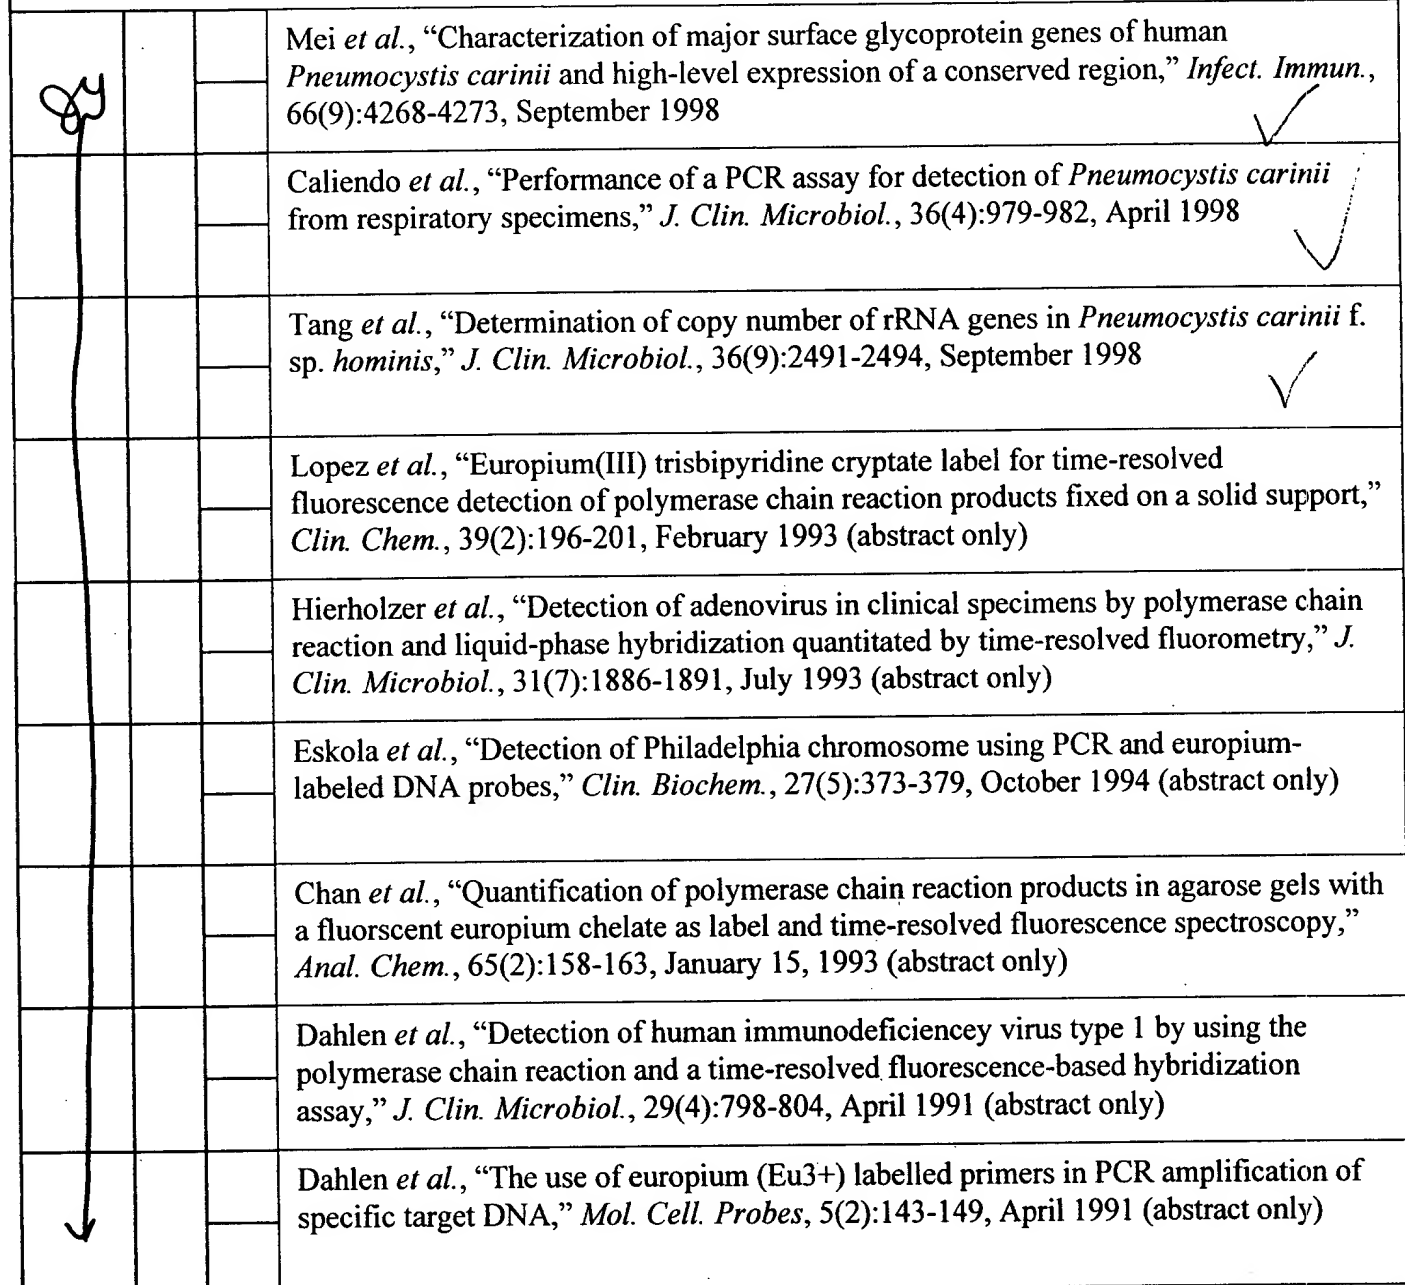 Mei et al., “Characterization of major surface glycoprotein genes of human
Pneumocystis carinii and high-level expression of a conserved region,” Infect. Immun.,
66(9):4268-4273, September 1998
Caliendo et al., “Performance of a PCR assay for detection of Pneumocystis carinii
from respiratory specimens,” J. Clin. Microbiol., 36(4):979-982, April 1998
Tang et al., “Determination of copy number of rRNA genes in Pneumocystis carinii f.
sp. hominis,” J. Clin. Microbiol., 36(9):2491-2494, September 1998
Lopez et al., “Europium(III) trisbipyridine cryptate label for time-resolved
fluorescence detection of polymerase chain reaction products fixed on a solid support,”
Clin. Chem., 39(2):196-201, February 1993 (abstract only)
Hierholzer et al., “Detection of adenovirus in clinical specimens by polymerase chain
reaction and liquid-phase hybridization quantitated by time-resolved fluorometry,” J.
Clin. Microbiol., 31(7):1886-1891, July 1993 (abstract only)
Eskola et al., “Detection of Philadelphia chromosome using PCR and europium-
labeled DNA probes,” Clin. Biochem., 27(5):373-379, October 1994 (abstract only)
Chan et al., “Quantification of polymerase chain reaction products in agarose gels with
a fluorscent europium chelate as label and time-resolved fluorescence spectroscopy,”
Anal. Chem., 65(2):158-163, January 15, 1993 (abstract only)
Dahlen et al., “Detection of human immunodeficiencey virus type 1 by using the
polymerase chain reaction and a time-resolved fluorescence-based hybridization
assay,” J. Clin. Microbiol., 29(4):798-804, April 1991 (abstract only)
Dahlen et al., “The use of europium (Eu3+) labelled primers in PCR amplification of
specific target DNA,” Mol. Cell. Probes, 5(2):143-149, April 1991 (abstract only)